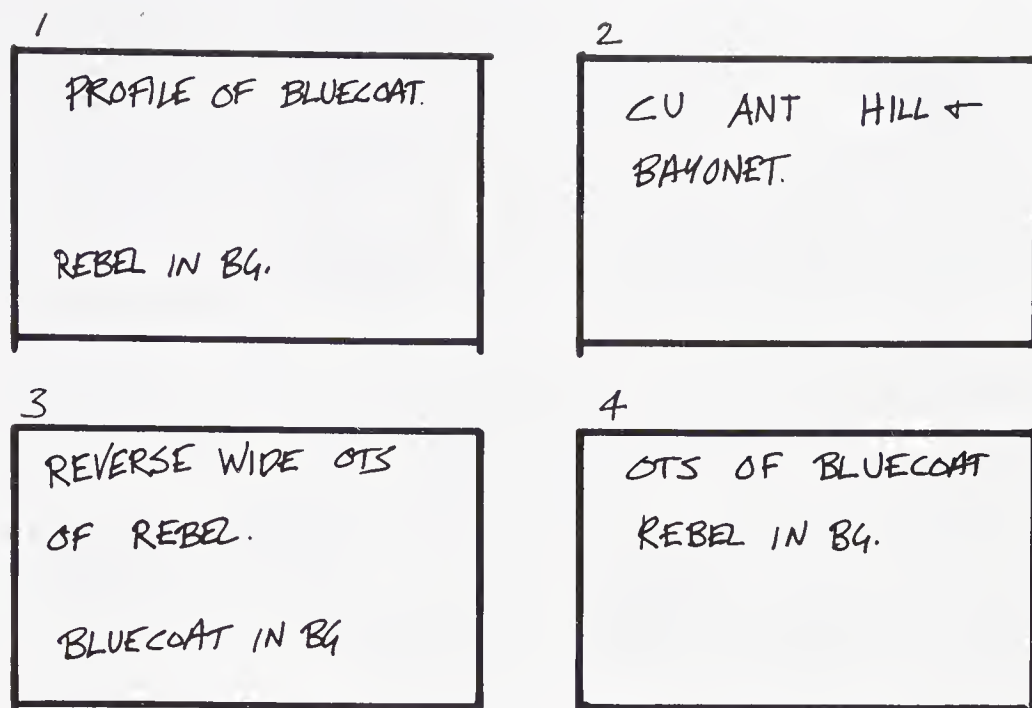 1
PROFILE OF BLUECOAT.
REBEL IN BG.
2
CU ANT HILL +
BAYONET.
3
REVERSE WIDE OTS
OF REBEL.
BLUECOAT IN BG
4
OTS OF BLUECOAT
REBEL IN BG.